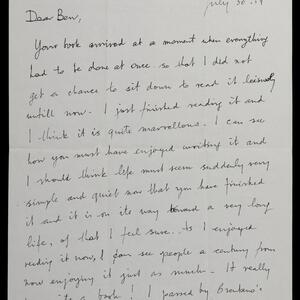 July 30.
Dear Ben,
Your book arrived at a moment when everything
had to be done at once so that I did not
get a chance to sit down to read it leisurely
untill now. I just finished reading it and
I think it is quite marvellous. I can see
how you must have enjoyed writing it and
I should think life must seem suddenly very
simple and quiet now that you have finished
it and it is on its way toward a very long
life, of that I feel sure. As I enjoyed
reading it now, I can see people a century from
now enjoying it just as much. It really
is a book! I passed by